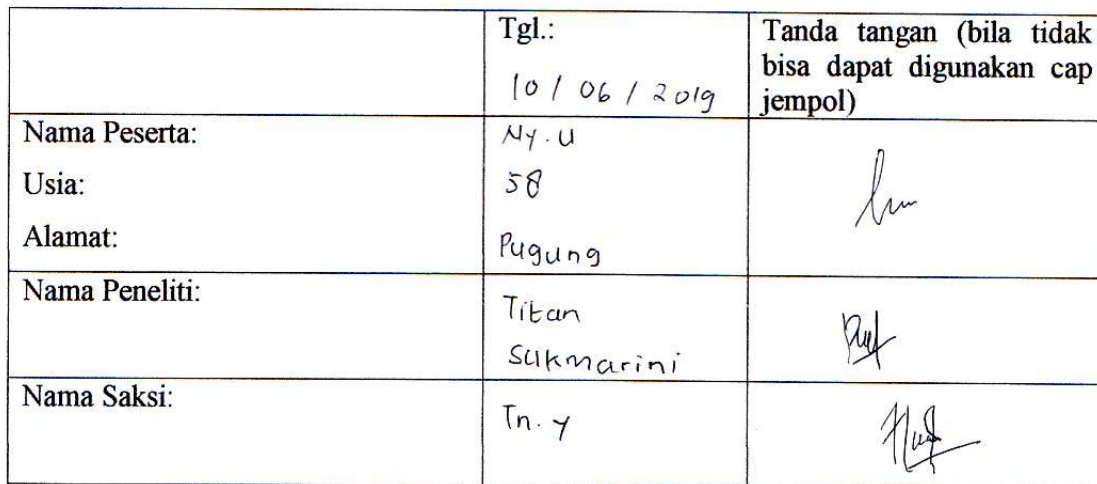 Tgl.:
10 / 06 / 2019
Tanda tangan (bila tidak
bisa dapat digunakan cap
jempol)
Nama Peserta:
Ny. U
Usia:
58
Alamat:
Pugung
Nama Peneliti:
Titan
Sukmarini
Nama Saksi:
Tn. Y